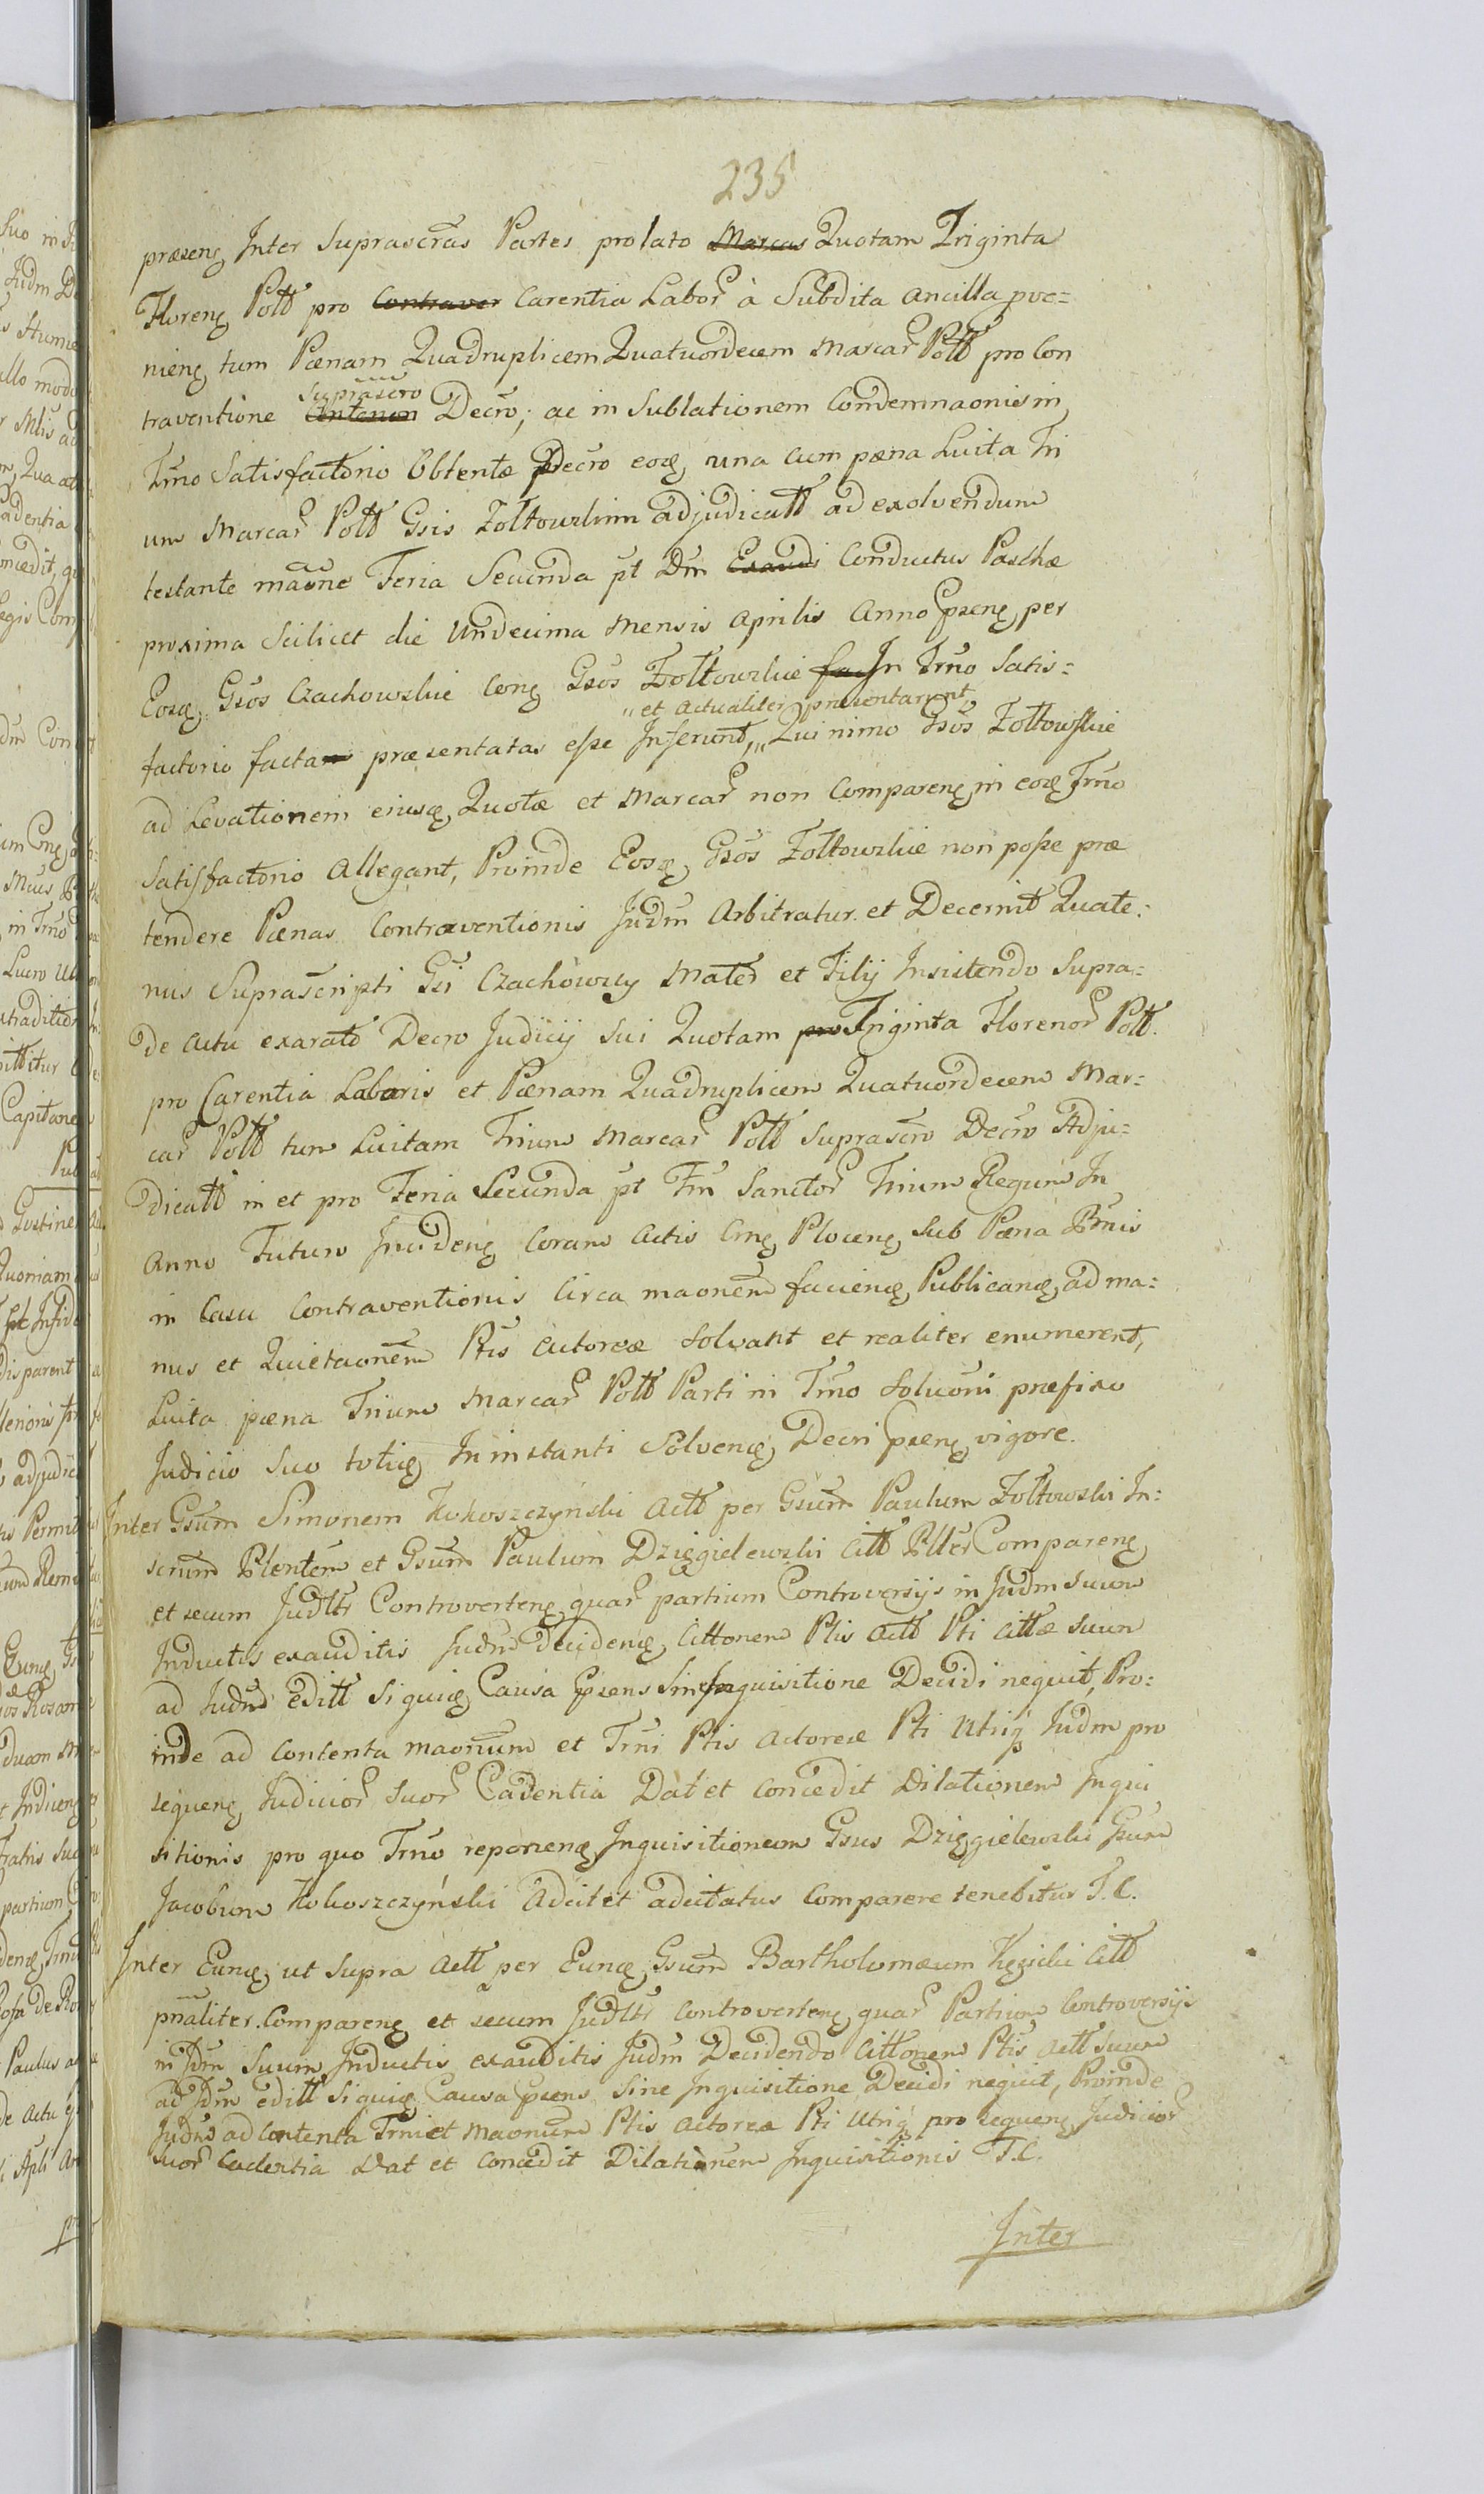 235
præseng Inter Suprascrãs Partes prolato Marcas Quotam Triginta
Floreng Poll pro Contraver Carentia Labor à Subdita ancilla prve=
nieng tum Pænam Quadruplicem Quatuordecem Marcar Poll pro Con
Suprascrõ
traventione Contenon Decrõ; ac in Sublationem Condemnaonis in
Trno Satisfactorio Obtentæ Decrõ eoq una cum pæna Luita Tri
um Marcar Poll Gsis Zołtowskim adjudicatt ad exolvendum
testante maõne Feria Secunda pt Dm Exaudi Conductus Paschæ
proxima Scilicet die Undecima Mensis Aprilis Anno præseng per
Eosq Gsõs Czachowskie Cong Gsõs Zołtowskie fac In Trño Satis=
et actualiter præsentarent
factorio facta præsentatas esse Inferunt, Qui nimo Gsõs Zołtowskie
ad Levationem eiusq Quotæ et Marcar non Compareng in eoq Trmo
Satisfactorio Allegant, Proinde Eosq Gsõs Zołtowskie non posse præ
tendere Pænas Contraventionis Judm Arbitratur et Decernit Quate=
nus Suprascripti Gsi Czachowscy Mater et Filij Insistendo Supra=
de actu exarato Decro Judicij sui Quotam pro Triginta Florenor Poll.
pro Carentia Laboris et Pænam Quadruplicem Quatuordecem Mar=
car Poll tum Luitam Trium Marcar Poll Suprascro Decrõ Adju=
dicatt in et pro Feria Secunda pt Fm Sanctor Trium Regum In
Anno Futuro Incideng Coram Actis Cing Ploceng Sub Pæna Bnnis
in Casu Contraventionis Circa maonem facieng, Publicang, ad ma=
nus et Quietaonem Ptis Actoreæ Solvant et realiter enumerent,
Luita pæna Trium Marcar Poll Parti in Tmo Soluõni præfixo
Judicio Suo totieq In instanti Solveng, Decri præseng vigore.
Inter Gsum Simonem Kokoszczyński Actt per Gsum Paulum Zołtowski In=
scrum Plentem et Gsum Paulum Dzięgielewski Citt Pltter Compareng
et secum Judltr Controverteng quar partium Controversijs in Judm suum
Inductis exauditis Judm Decideng, Cittonem Ptis Actt Pti Cittæ suum
ad Judm Editt Siquiq Causa præsens Sine Inquisitione Decidi nequit, Pro=
inde ad Contenta maonum et Trni Ptis Actoreæ Pti Utriq Judm pro
sequeng Judicior Suor Cadentia Dat et Concedit Dilationem Inqui
sitionis pro quo Trno reporieng Inquisitionem Gsus Dzięgielewski Gsum
Jacobum Kokoszczyński Adcitet adcitatus Comparere tenebitur T. C.
Inter Eunq ut Supra Actt per Eunq Gsum Bartholomæum Kęsicki Citt
pnaliter. Compareng et secum Judltr Controverteng quar Partium Controversijs
in Jdm Suum Inductis exauditis Judm Decidendo Cittonem Ptis Actt suum
ad Jdm editt Siquiq Causa præsens Sine Inquisitione Decidi nequit, Proinde
Judm ad Contenta Trni et Maonum Ptis Actorea Pti Utriq pro sequeng Judicior
Suor Cadentia Dat et Concedit Dilationem Inquisitionis T. C.
Inter